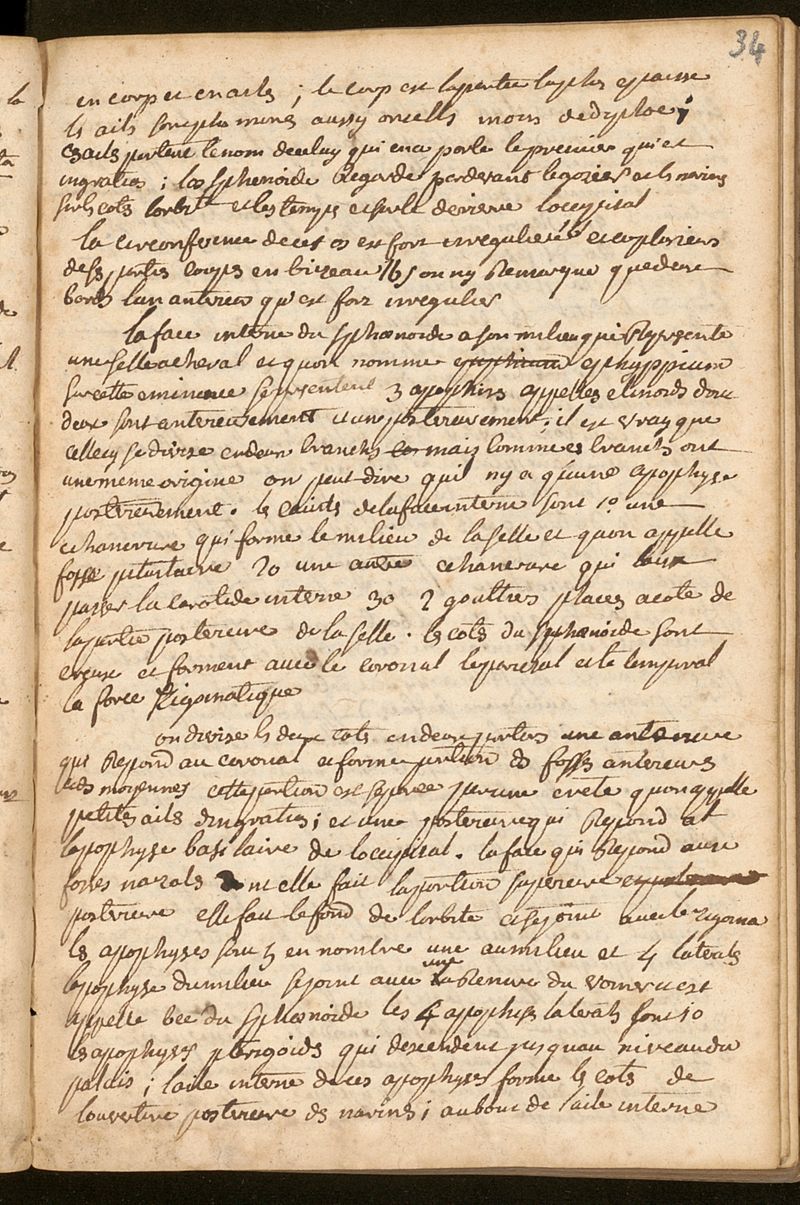 34
en corp et en ails ; le corp est la partie la plus epaisse
les ails sont plus minces aussy ont ells moins de diploe ;
ces ails portent le nom de celuy qui en a porle le premier qui est
ingratias ; los sphenoide Regarde par devant le gosier et les narines
sur les cots l'orbite et les temps et sur le derriere loccipital
la circonference de cet os est fort irreguliere et en plusieurs
de ses partis coupé en bizeau on ny Remarque que deux
bords lun anterieur qu'est fort irregulier
la face interne du sphœnoide a son milieu qui Represente
une selle a cheval et quon nomme ephyppium
sur cette eminence se presentent 3 apophises appelles clinoids dont
deux sont anterieurement et un posterieurement ; il est vray que
celle cy se divise en deux branchs mais comme ces branchs ont
une meme origine on peut dire quil ny a q'une apophyse
posterieurement . les cavités de la face interne sont 1o une
echancrure qui forme le milieu de la selle et quon appelle
fosse pituitaire 2o une autre echancrure qui laisse
passer la carotide interne 3o 2 gouttiers placés a coté de
la partie posterieure de la selle . les cots du sphœnoide sont
creux et forment avec le coronal le parietal et le temporal
la fosse zigomatique
on divise les deux cots en deux partis une anterieure
qui Repond au coronal et forme portion des fosses anterieurs
et des moyennes cette portion est separee par une crete quon appelle
petits ails dingratias ; et une posterieure qui Repond a l
lapophyse basilaire de loccipital . la face qui Repond aux
fosses nazals elle fait la portion superieure
posterieure elle fait le fond de lorbite et se joint avec le zigoma
les apophyses sont 5 en nombre une au milieu et 4 laterals
lapophyse du milieu se joint avec une Renure du vomer et est
appellé bec du sphœnoide les 4 apophyses laterals sont 1o
les apophyses pterigoids qui descendent jusquau niveau du
palais ; laile interne de ces apophyses forme les cots de
l'ouverture posterieure des narines ; au bout de l'aile interne